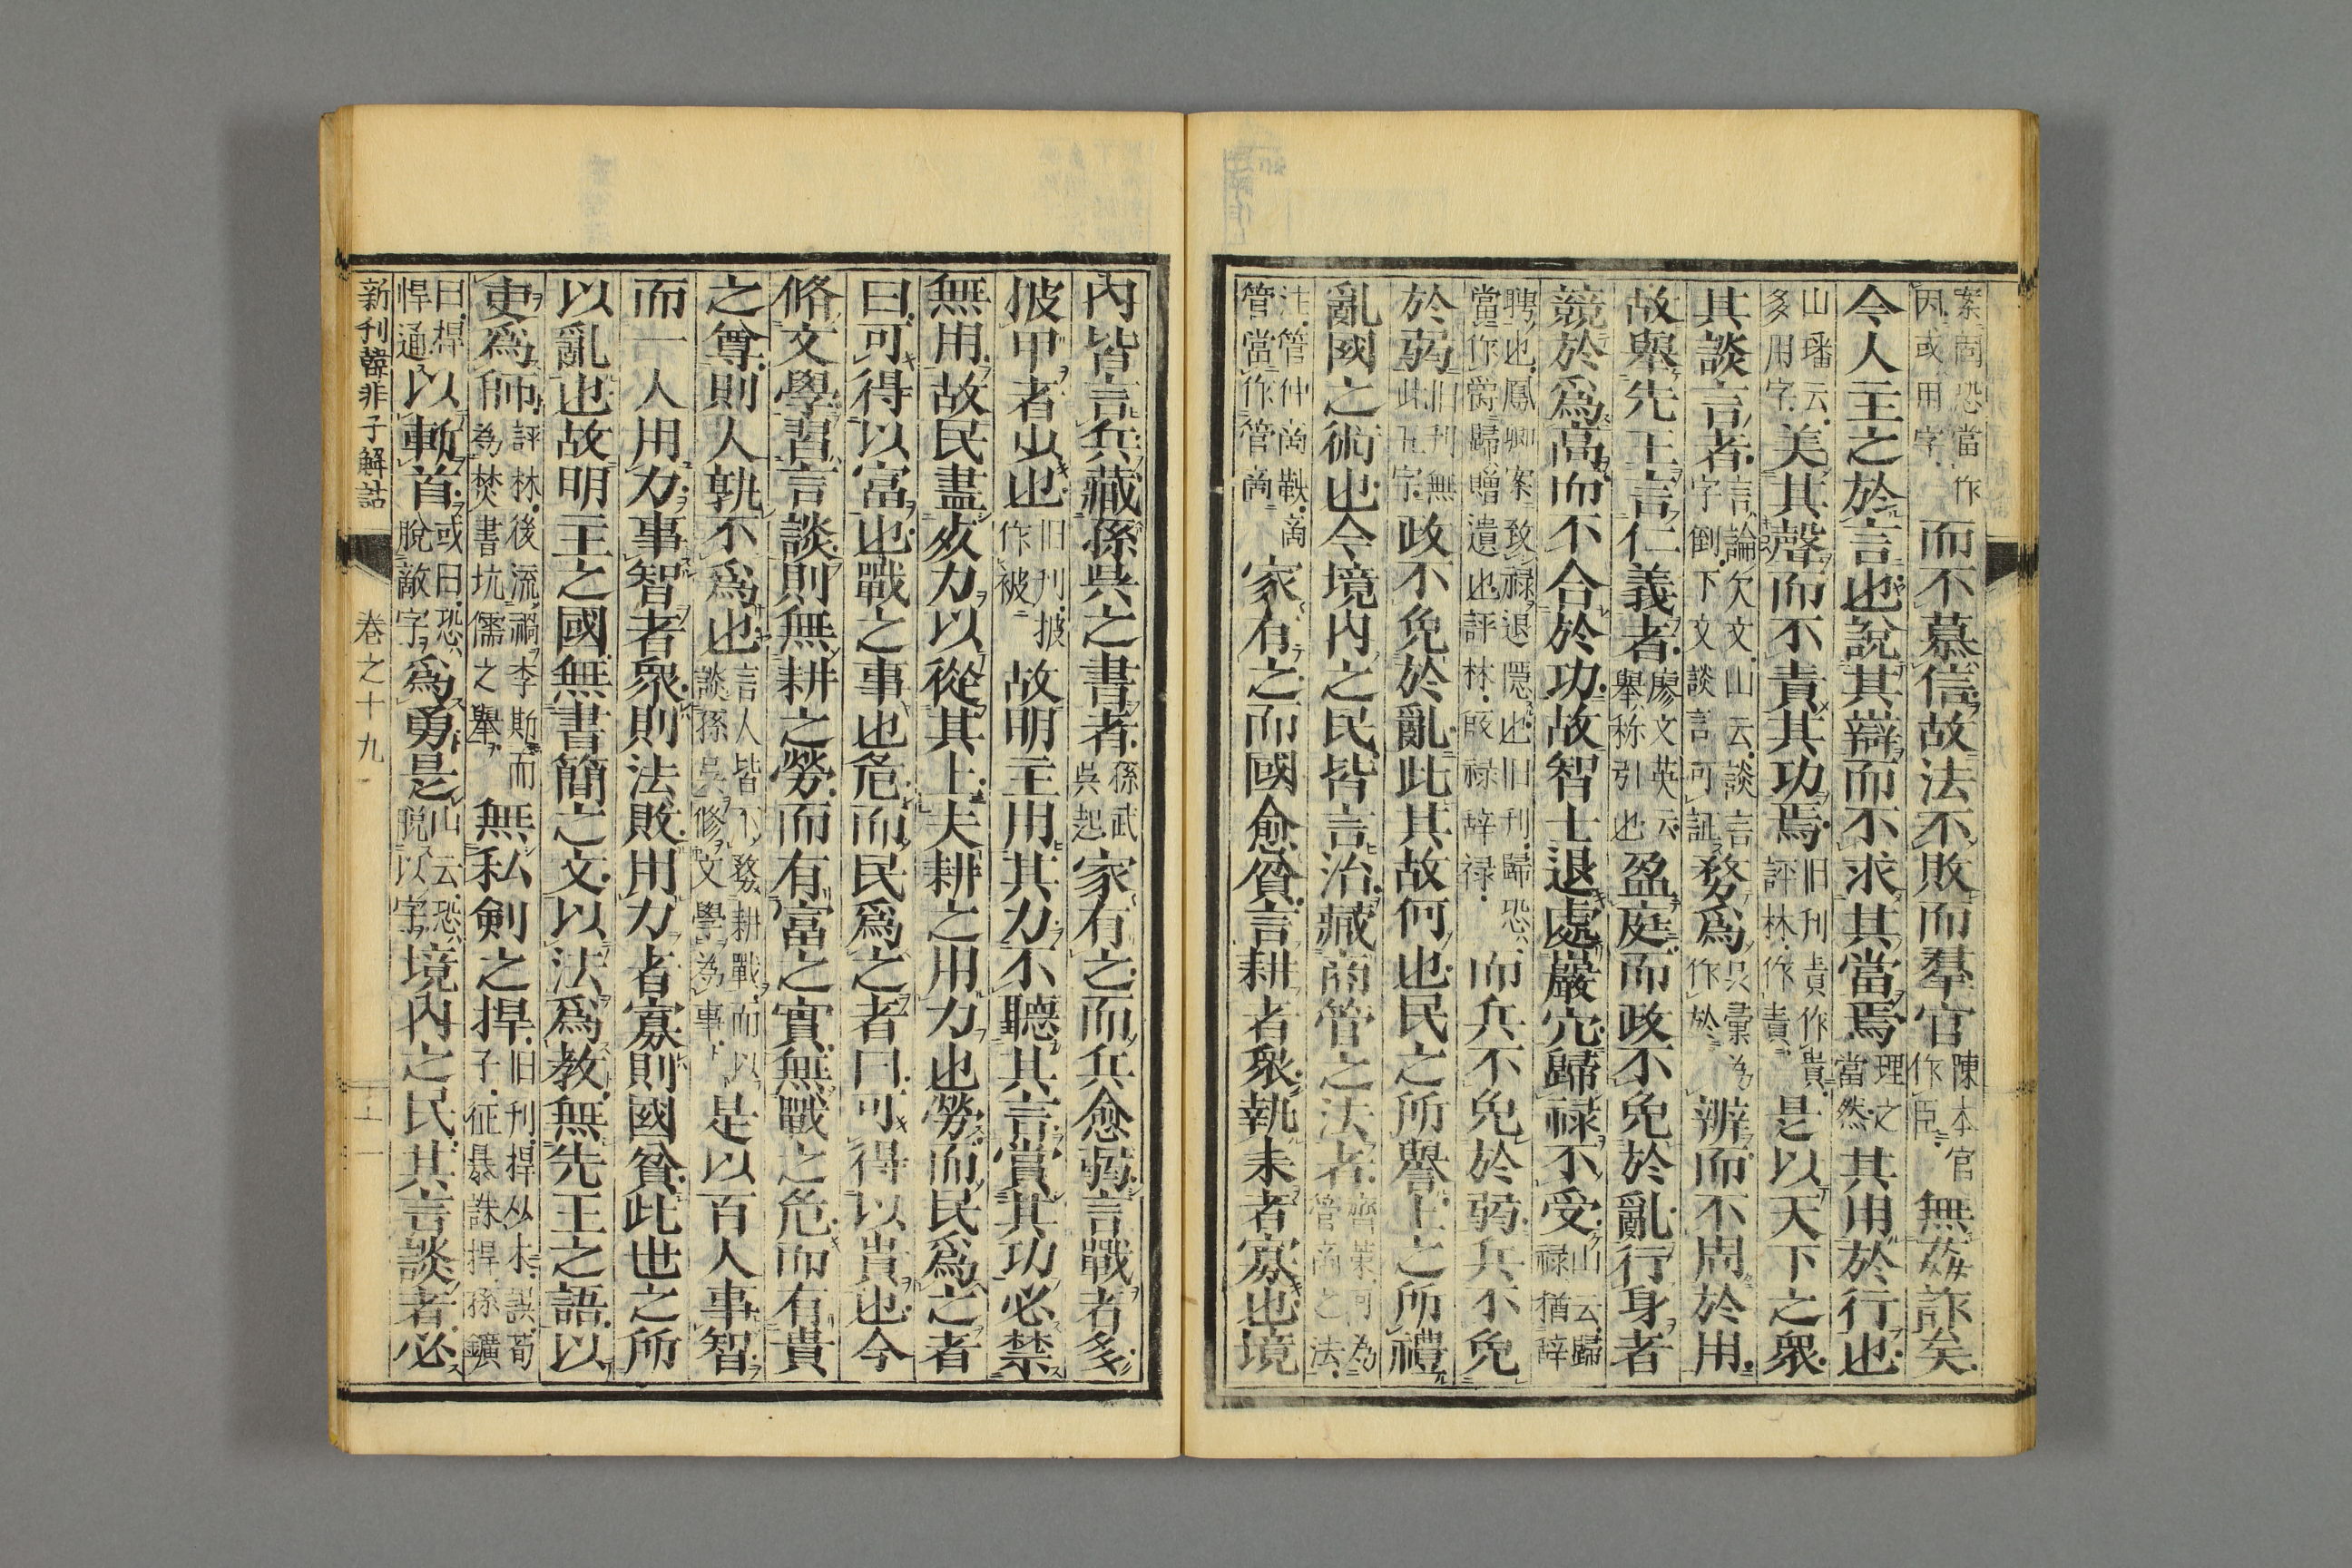 案固恐當作因或用字而不慕信故法不敗而羣官陳本官作臣無姦詐矣
今人主之於言也說其辯而不求其當焉理文當然其用於行也
山璠云多用字美其聲而不責其功焉旧刊責作貴評林作責是以天下之衆
其談言者言論欠文山云談言字倒下文談言可証務爲呉彙為作於辨而不周於用
故舉先王言仁義者廖文英云舉称引也盈庭而政不免於亂行身者
競於爲高而不合於功故智士退處巖穴歸禄不受山云歸禄猶辞
聘也鳳卿案致禄退隠也旧刊歸恐當作歸贈遺也評林禄辞禄而兵不免於弱兵不免
於弱旧刊無此五字政不免於亂此其故何也民之所譽上之所禮
亂國之術也今境内之民皆言治藏商管之法者齊策何為管商之法
注管仲商鞅商管當作管商家有之而國愈貧言耕者衆執耒者寡也境
内皆言兵藏孫呉之書者孫武呉起家有之而兵愈弱言戰者多
披甲者少也旧刊披作被故明主用其力不聽其言賞其功必禁
無用故民盡死力以從其上夫耕之用力也勞而民爲之者
曰可得以富也戰之事也危而民爲之者曰可得以貴也今
脩文學習言談則無耕之勞而有富之實無戰之危而有貴
之尊則人孰不爲也言人皆不務耕戰而以談孫呉修文學為事是以百人事智
而一人用力事智者衆則法敗用力者寡則國貧此世之所
以亂也故明主之國無書簡之文以法爲教無先王之語以
吏爲師評林後流禍李斯而為焚書坑儒之舉無私劍之捍旧刊捍从木誤荀子征暴誅捍孫鑛
曰捍悍通以斬首或曰恐脫敵字爲勇是山云恐脫以字境内之民其言談者必
新刊韓非子解詁 卷之十九 十一